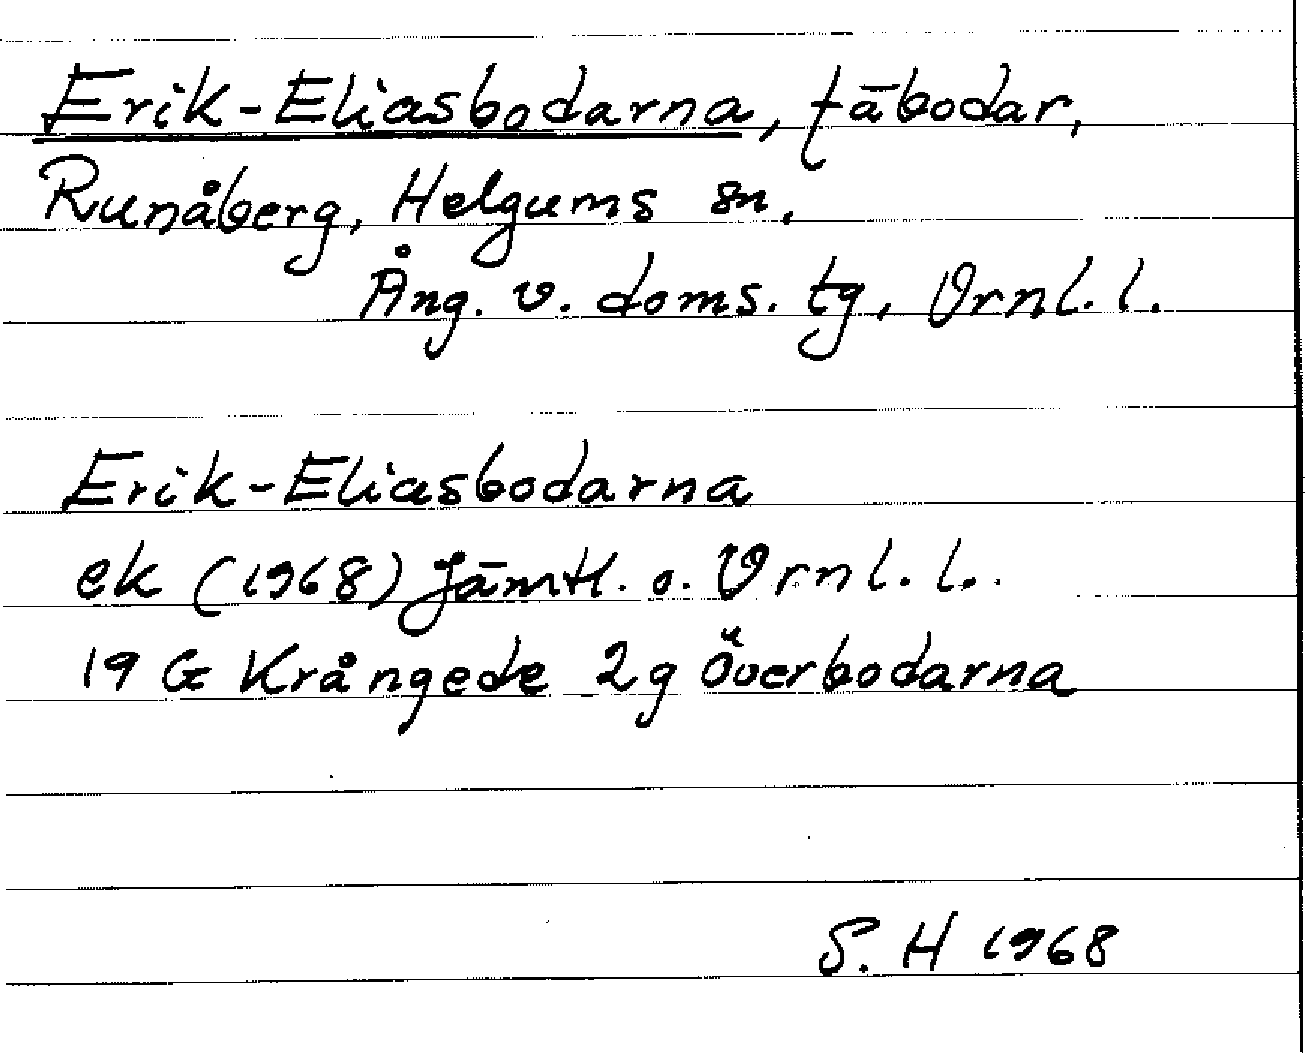 Erik-Eliasbodarna, fäbodar,
Runåberg, Helgums sn.
Ång. v. doms. tg, Vrnl. l.
Erik-Eliasbodarna
ek (1968) Jämtl. o. Vrnl. l.
19 G Krångede 2g Överbodarna
S. H 1968